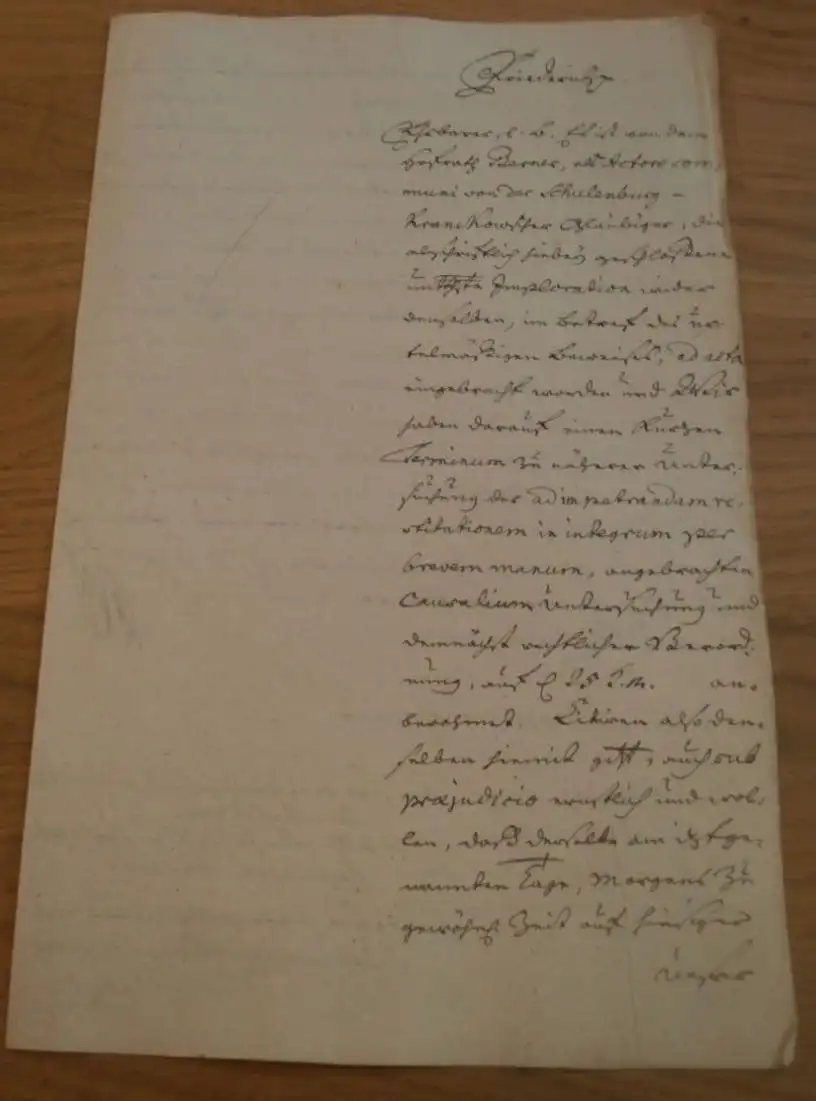 Friederich p
Ehrbarer, l. b. Es ist von dem
Hofrath Berner, als Actore com,
muni von der Schulenburg -
Kranckowscher Gläubiger, die
abschriftlich hiebey geschloßene
unthste Imploration wider
denselben, im betref des ur-
telmäßigen beweises, ad acta
eingebracht worden und Wir
haben darauf einen kurtzen
Terminum zu näherer Unter,
suchung der ad impetrandam re,
stitutionem in integrum per
brevem manum, angebrachten
Causalium Untersuchung und
demnächst rechtlicher Verord,
nung, auf 25 an,
berahmet. Citiren also den,
selben hiemit , auch sub
præjudicio ernstlich und wol,
len, daß derselbe am ge,
nannten Tage, Morgens Zu
gewöhnl Zeit auf hiesiger
Unserer